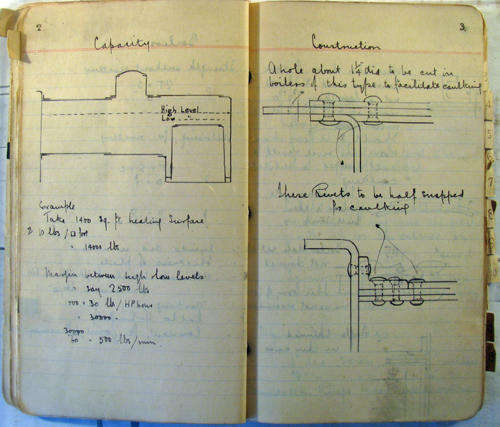 2
Capacity
High Level
Low "
Example
Take 1400 sq. ft heating surface
10 lbs /
= 14000 lbs
Margin between high & low levels
= say 2500 lbs
@ 30 lbs/HP hours
= 30000
30000
60 = 500 lbs/min.
3
Construction
A hole about 1¼ dia. to be cut in
boilers of this type to facilitate caulking
These Rivets to be half snapped
for caulking